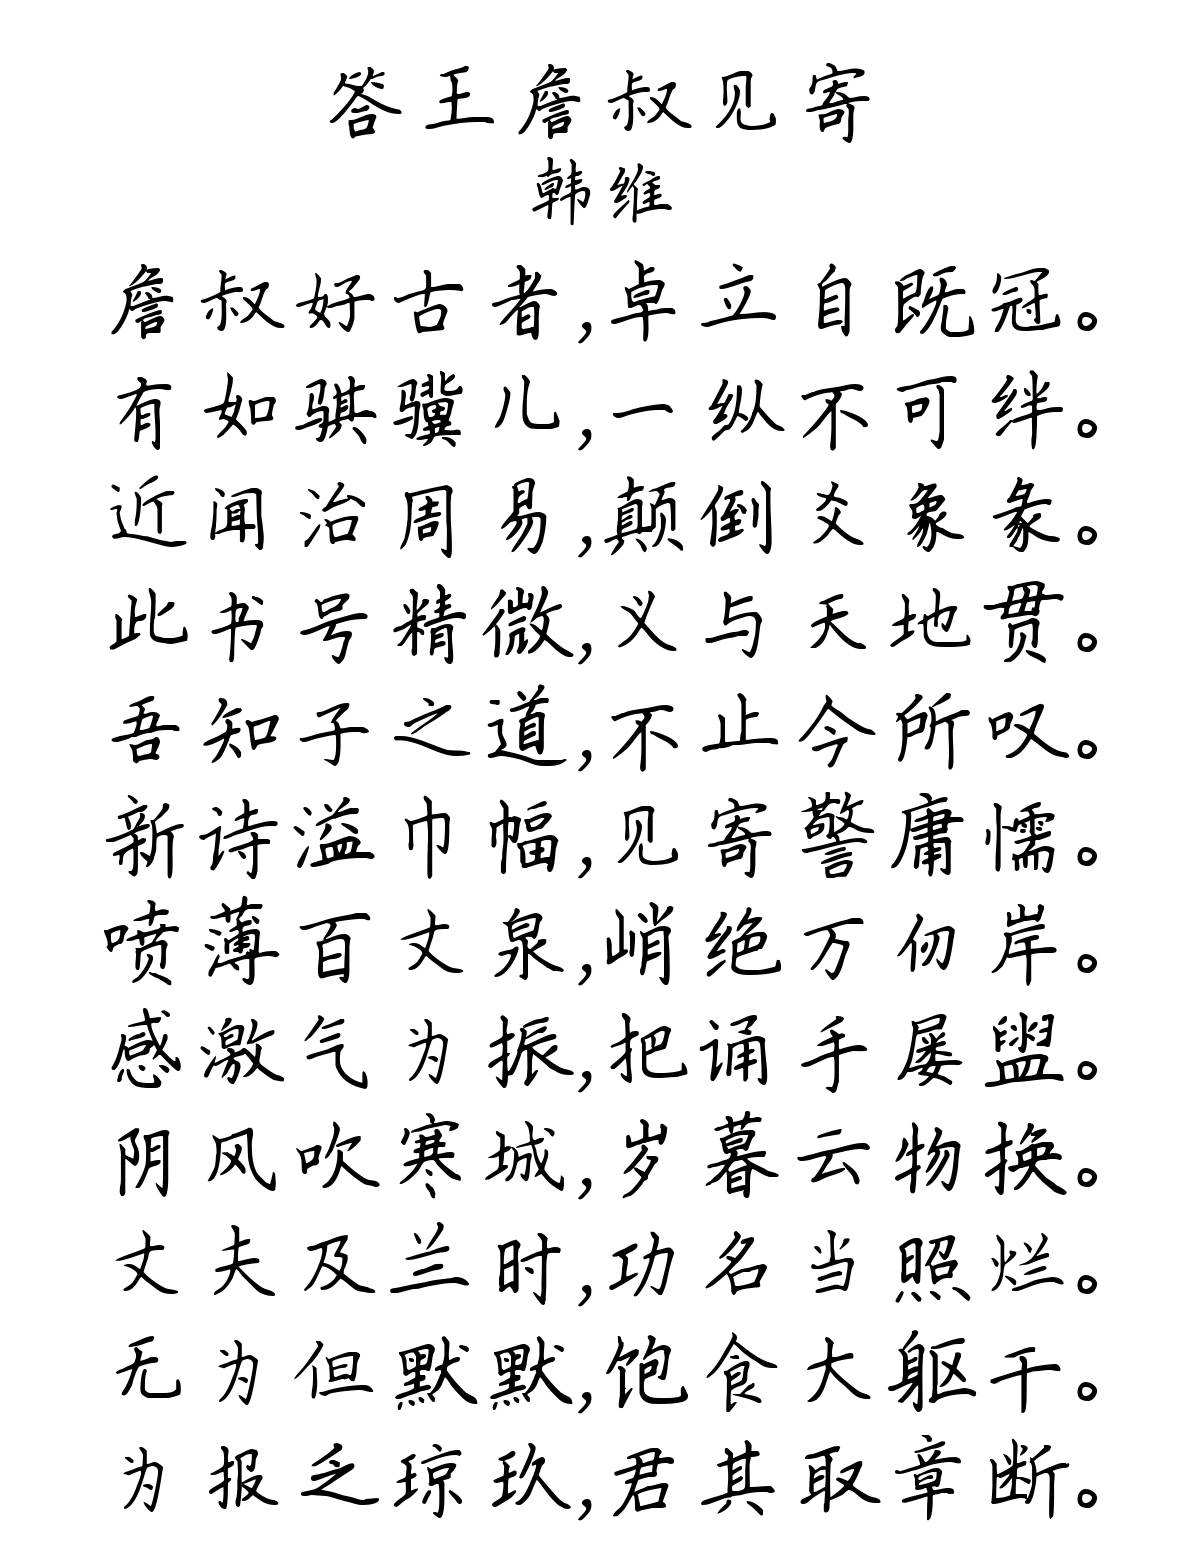 答王詹叔见寄
韩维
詹叔好古者,卓立自既冠。
有如骐骥儿,一纵不可绊。
近闻治周易,颠倒爻象彖。
此书号精微,义与天地贯。
吾知子之道,不止今所叹。
新诗溢巾幅,见寄警庸懦。
喷薄百丈泉,峭绝万仞岸。
感激气为振,把诵手屡盥。
阴风吹寒城,岁暮云物换。
丈夫及兰时,功名当照烂。
无为但默默,饱食大躯干。
为报乏琼玖,君其取章断。